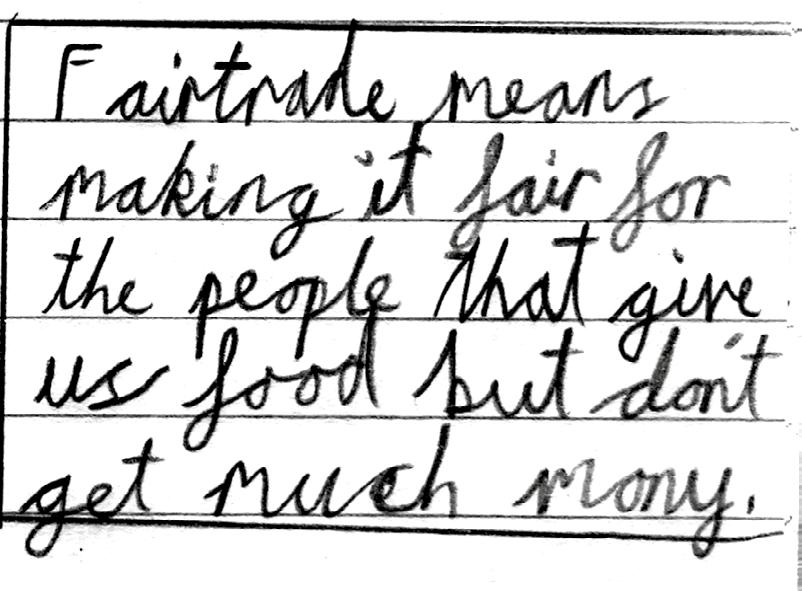 Fairtrade means
making it fair for
the people that give
us food but don't
get much mony.